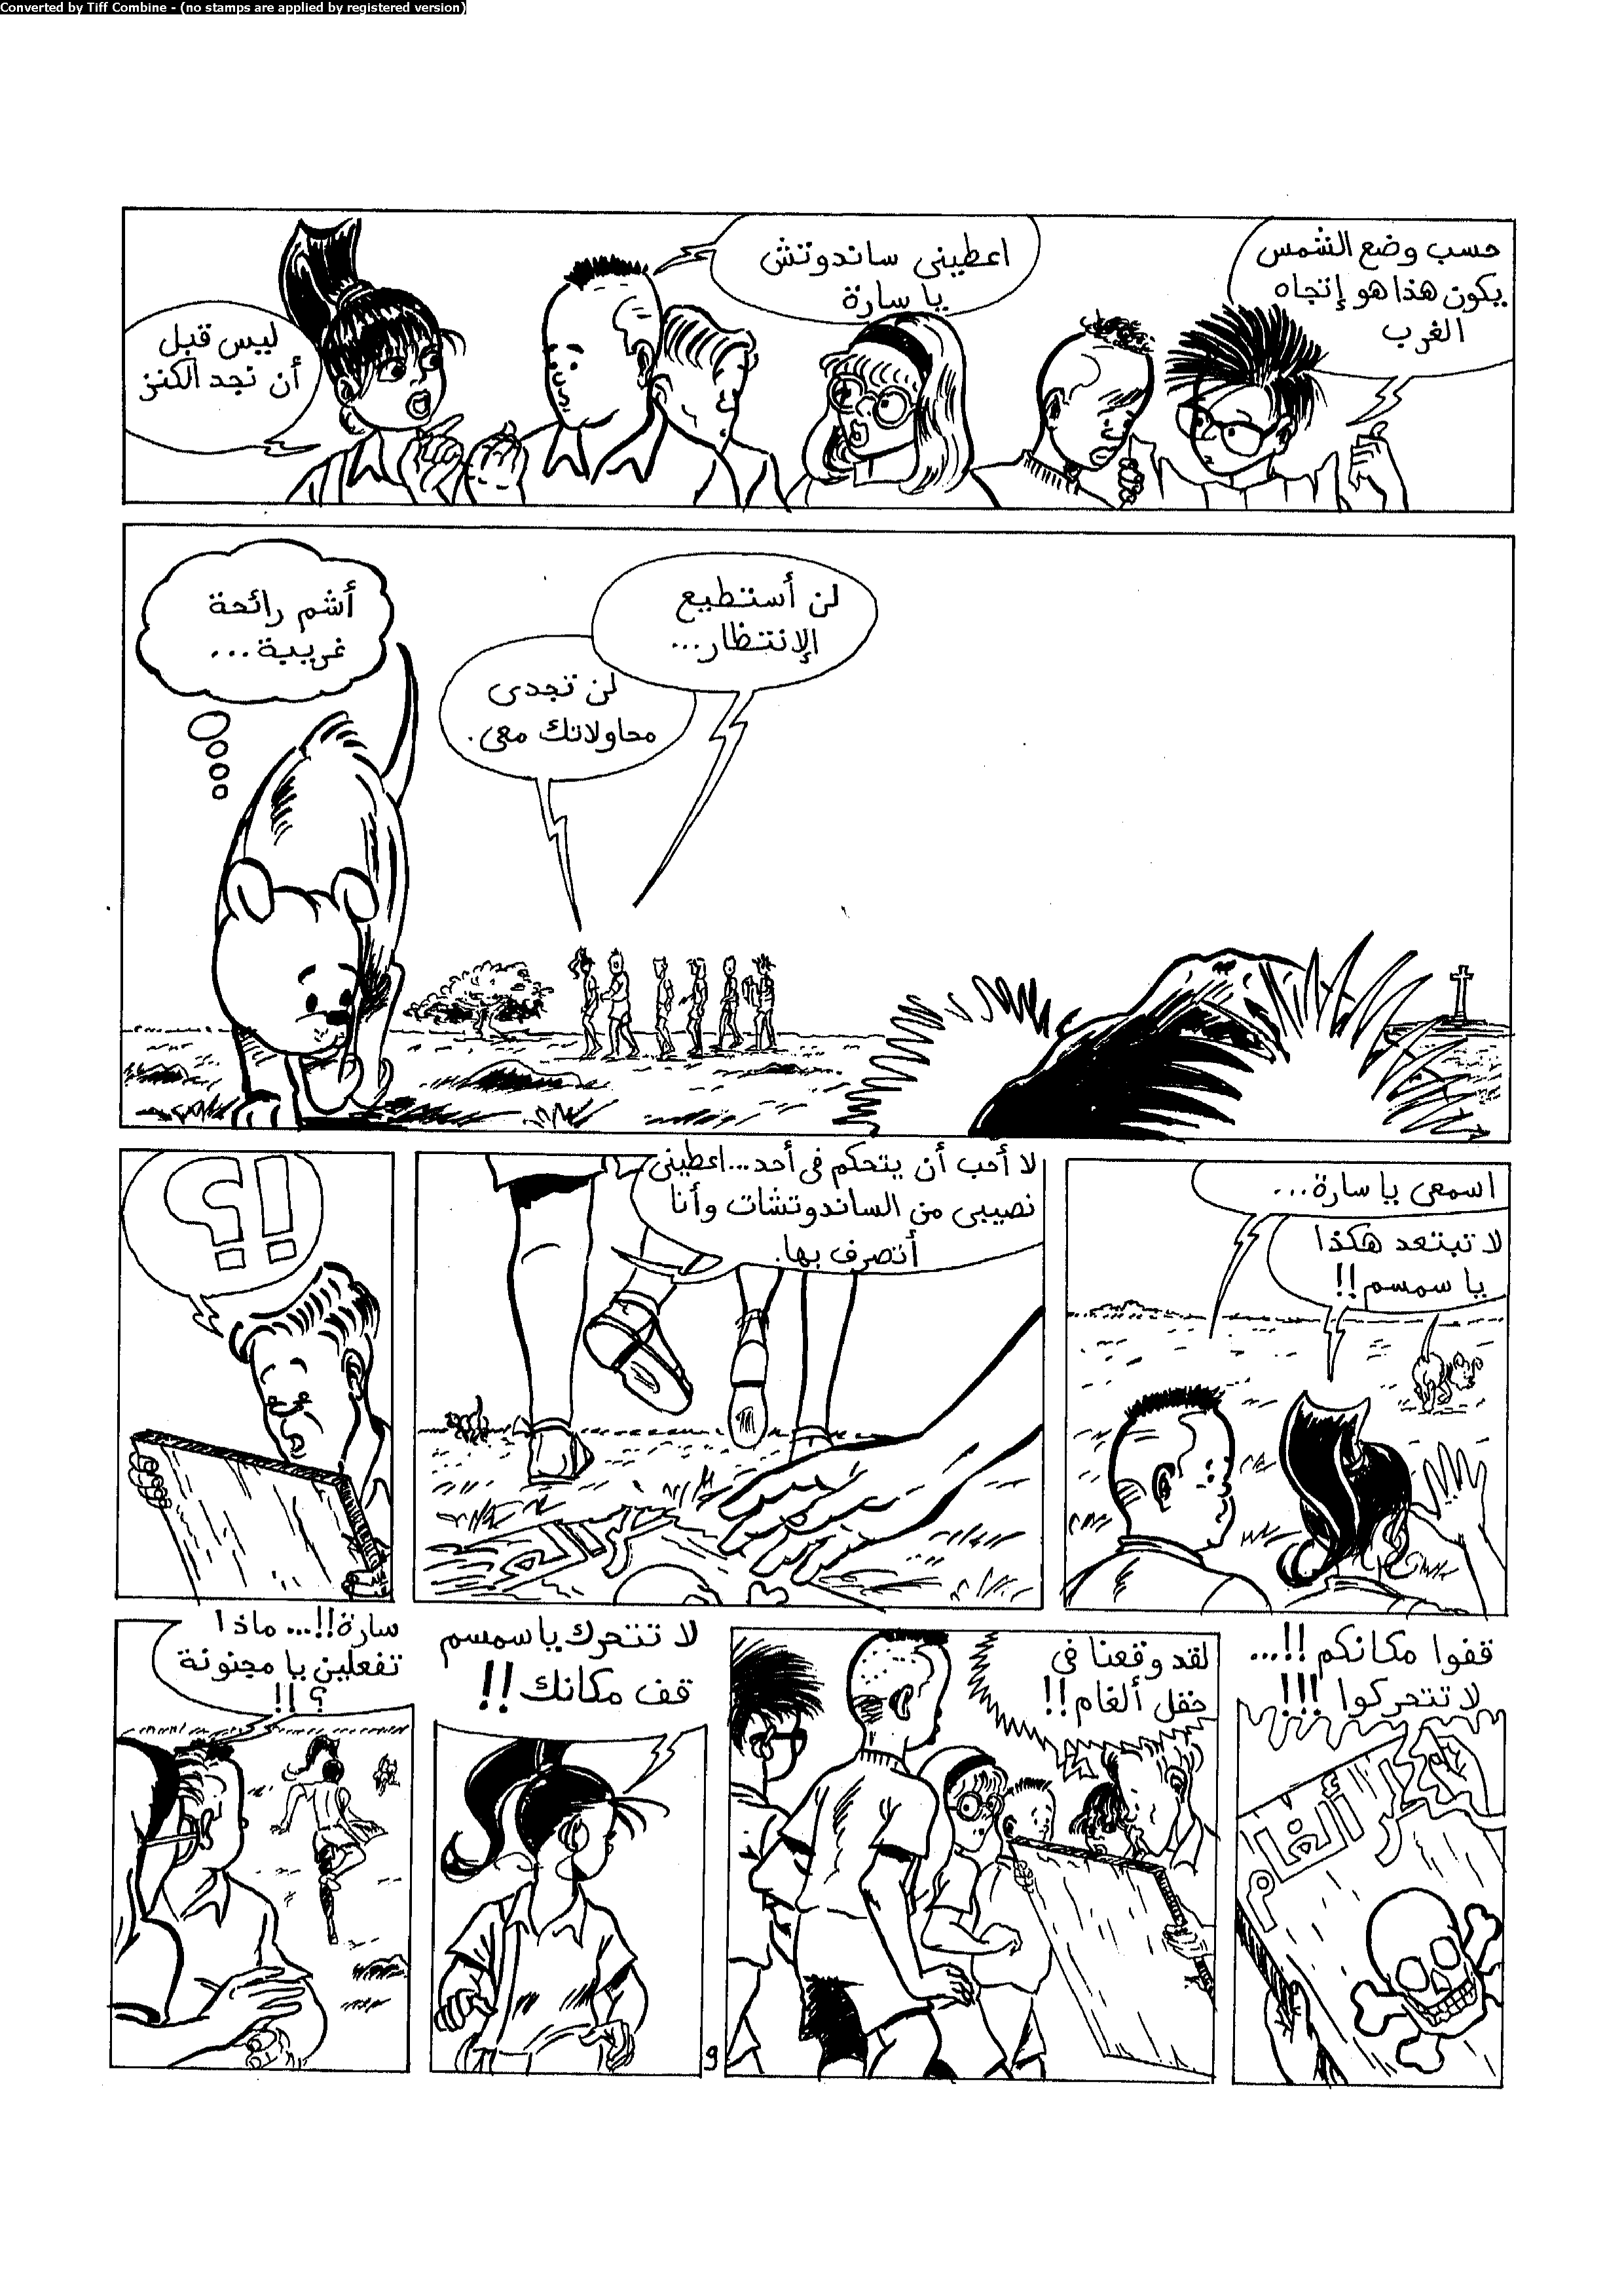 Converted by Tiff Combine - (no stamps are applied by registered version)
حسب وضع الشمس
يكون هذا هو إتجاه
الغرب
اعطينى ساندوتش
يا سارة
ليس قبل
أن نجد الكنز
لن أستطيع
الإنتظار...
لن تجدى
محاولاتك معى.
أشم رائحة
غريبة...
اسمعى يا سارة...
لا تبتعد هكذا
يا سمسم!!
لا أحب أن يتحكم فى أحد...اعطينى
نصيبى من الساندوتشات وأنا
أتصرف بها.
!؟
قفوا مكانكم!!...
لا تتحركوا!!!
ألغام
لقد وقعنا فى
حقل ألغام!!
لا تتحرك يا سمسم
قف مكانك!!
سارة!!...ماذا
تفعلين يا مجنونة
؟!!
9